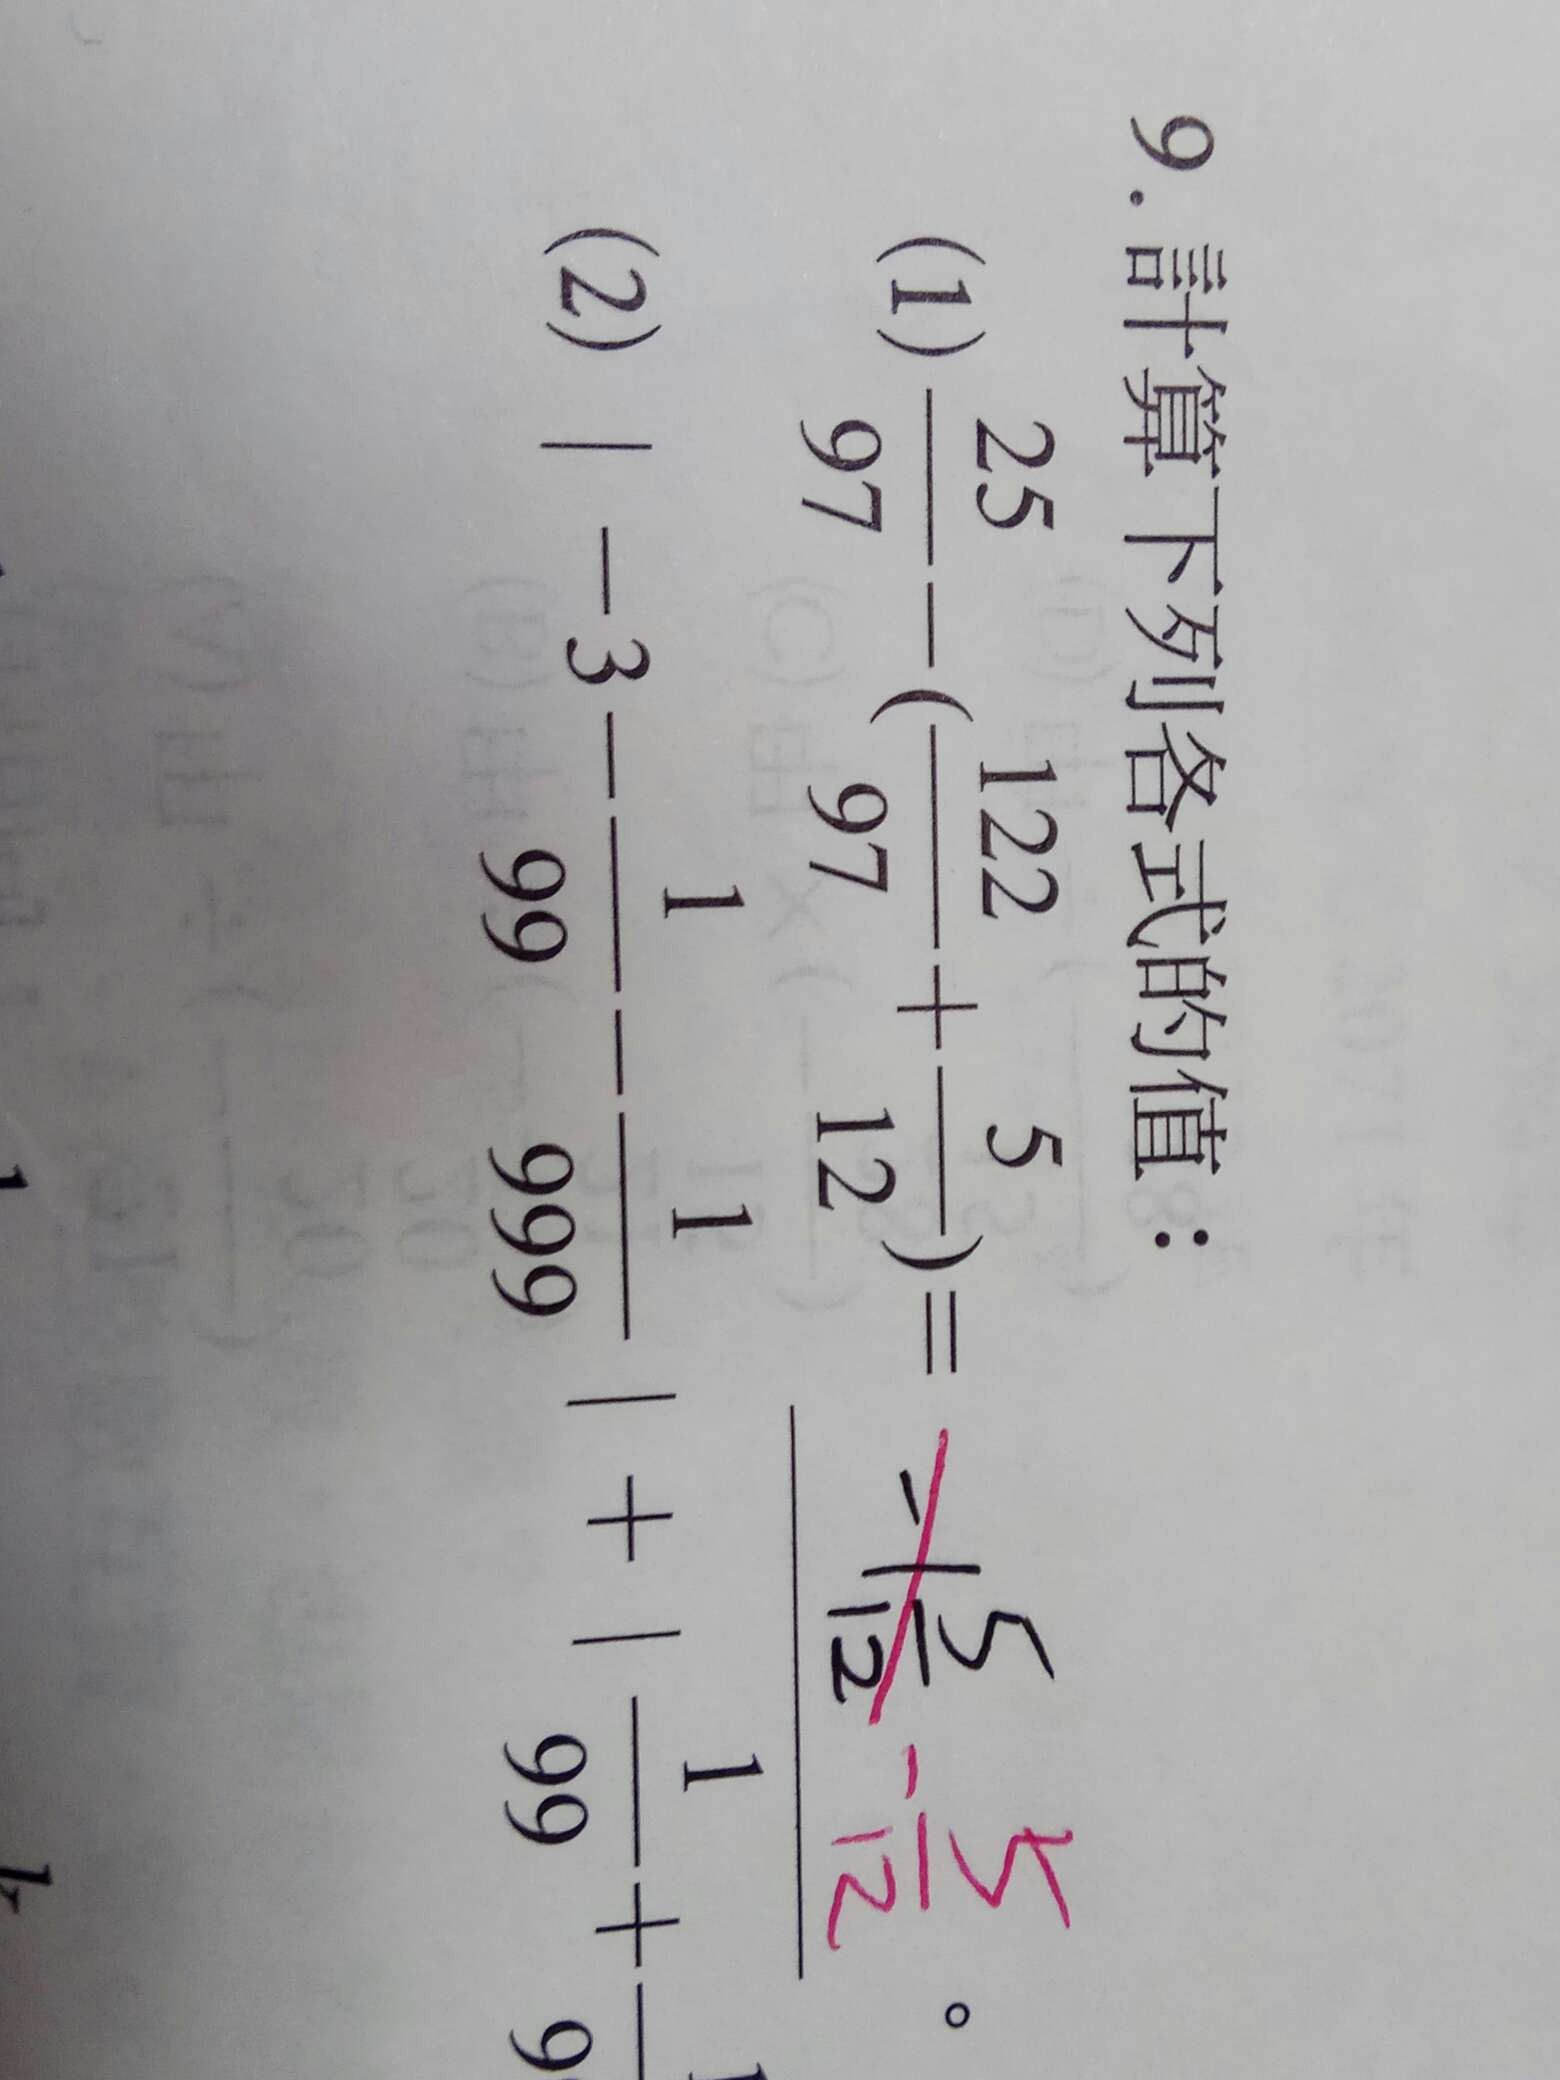 9. 計算下列各式的值：
(1) 25/97 - (122/97 + 5/12) = -1 5/12 - 5/12 。
(2) | -3 - 1/99 - 1/999 | + | 1/99 + 1